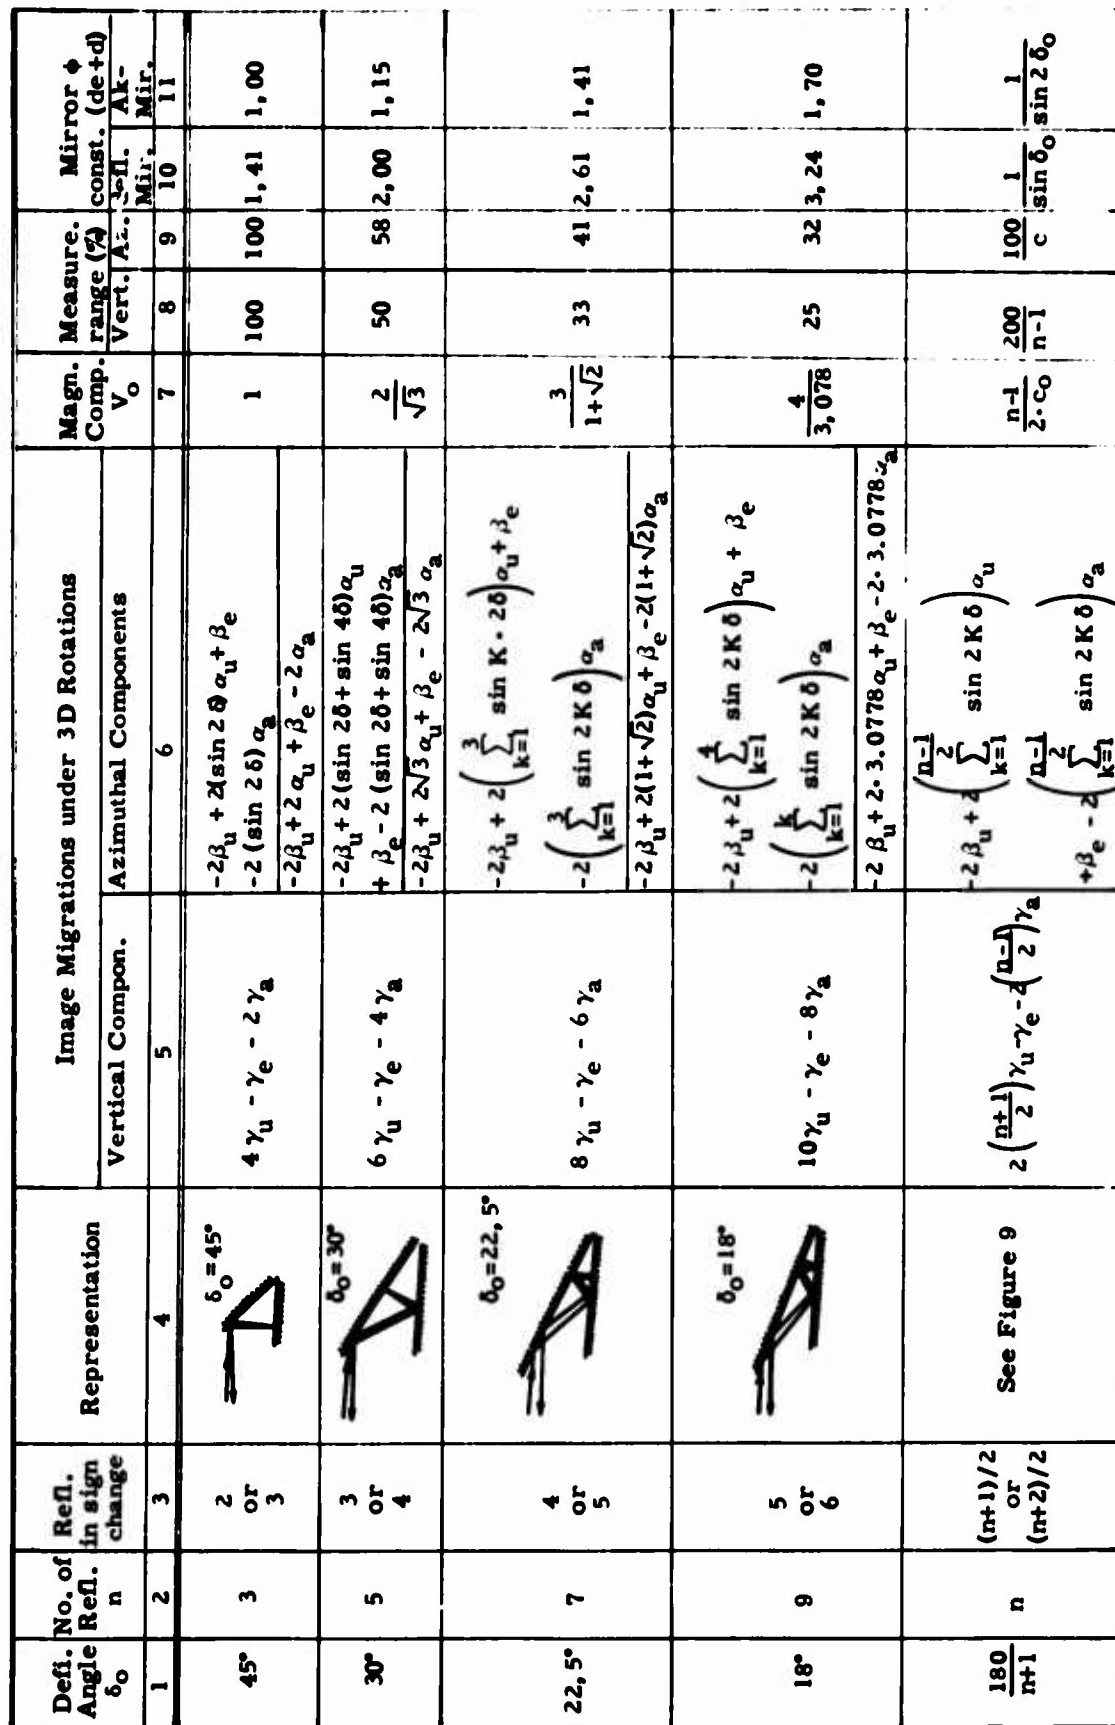 Defi. Angle δo | No. of Refl. n | Refl. in sign change | Representation | Image Migrations under 3D Rotations | Magn. Comp. Vo | Measure. range (%) | Mirror ϕ const. (de+d)
Vertical Compon. | Azimuthal Components | Vert. | Az. | Mir. | Ak- Mir.
1 | 2 | 3 | 4 | 5 | 6 | 7 | 8 | 9 | 10 | 11
45° | 3 | 2 or 3 | δo=45° | 4γu - γe - 2γa | -2βu + 2(sin 2δ)αu + βe
-2 (sin 2δ)αa
-2βu + 2αu + βe - 2αa | 1 | 100 | 100 | 1,41 | 1,00
30° | 5 | 3 or 4 | δo=30° | 6γu - γe - 4γa | -2βu + 2(sin 2δ + sin 4δ)αu
+ βe - 2 (sin 2δ + sin 4δ)αa
-2βu + 2√3 αu + βe - 2√3 αa | 2/√3 | 50 | 58 | 2,00 | 1,15
22,5° | 7 | 4 or 5 | δo=22,5° | 8γu - γe - 6γa | -2βu + 2(∑ k=1 3 sin K · 2δ)αu + βe
-2(∑ k=1 3 sin 2Kδ)αa
-2βu + 2(1+√2)αu + βe - 2(1+√2)αa | 3/(1+√2) | 33 | 41 | 2,61 | 1,41
18° | 9 | 5 or 6 | δo=18° | 10γu - γe - 8γa | -2βu + 2(∑ k=1 4 sin 2Kδ)αu + βe
-2(∑ k=1 k sin 2Kδ)αa
-2βu + 2·3.0778αu + βe - 2·3.0778αa | 4/3,078 | 25 | 32 | 3,24 | 1,70
180/(n+1) | n | (n+1)/2 or (n+2)/2 | See Figure 9 | 2((n+1)/2)γu - γe - 2((n-1)/2)γa | -2βu + 2(∑ k=1 (n-1)/2 sin 2Kδ)αu
+βe - 2(∑ k=1 (n-1)/2 sin 2Kδ)αa | (n-1)/(2·co) | 200/(n-1) | 100/c | 1/sin δo | 1/sin 2δo